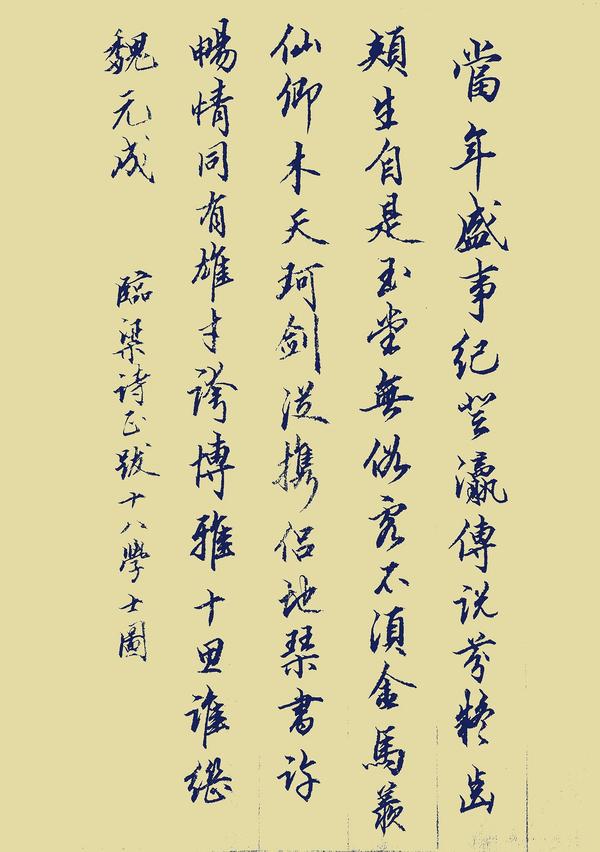 當年盛事紀登瀛傳説芬齒
頰生自是玉堂無俗客不須金馬羨
仙卿木天珂劍從攜侶琴書許
暢情同有雄才誇博雅十思誰繼
魏元成
臨梁詩正跋十八學士圖